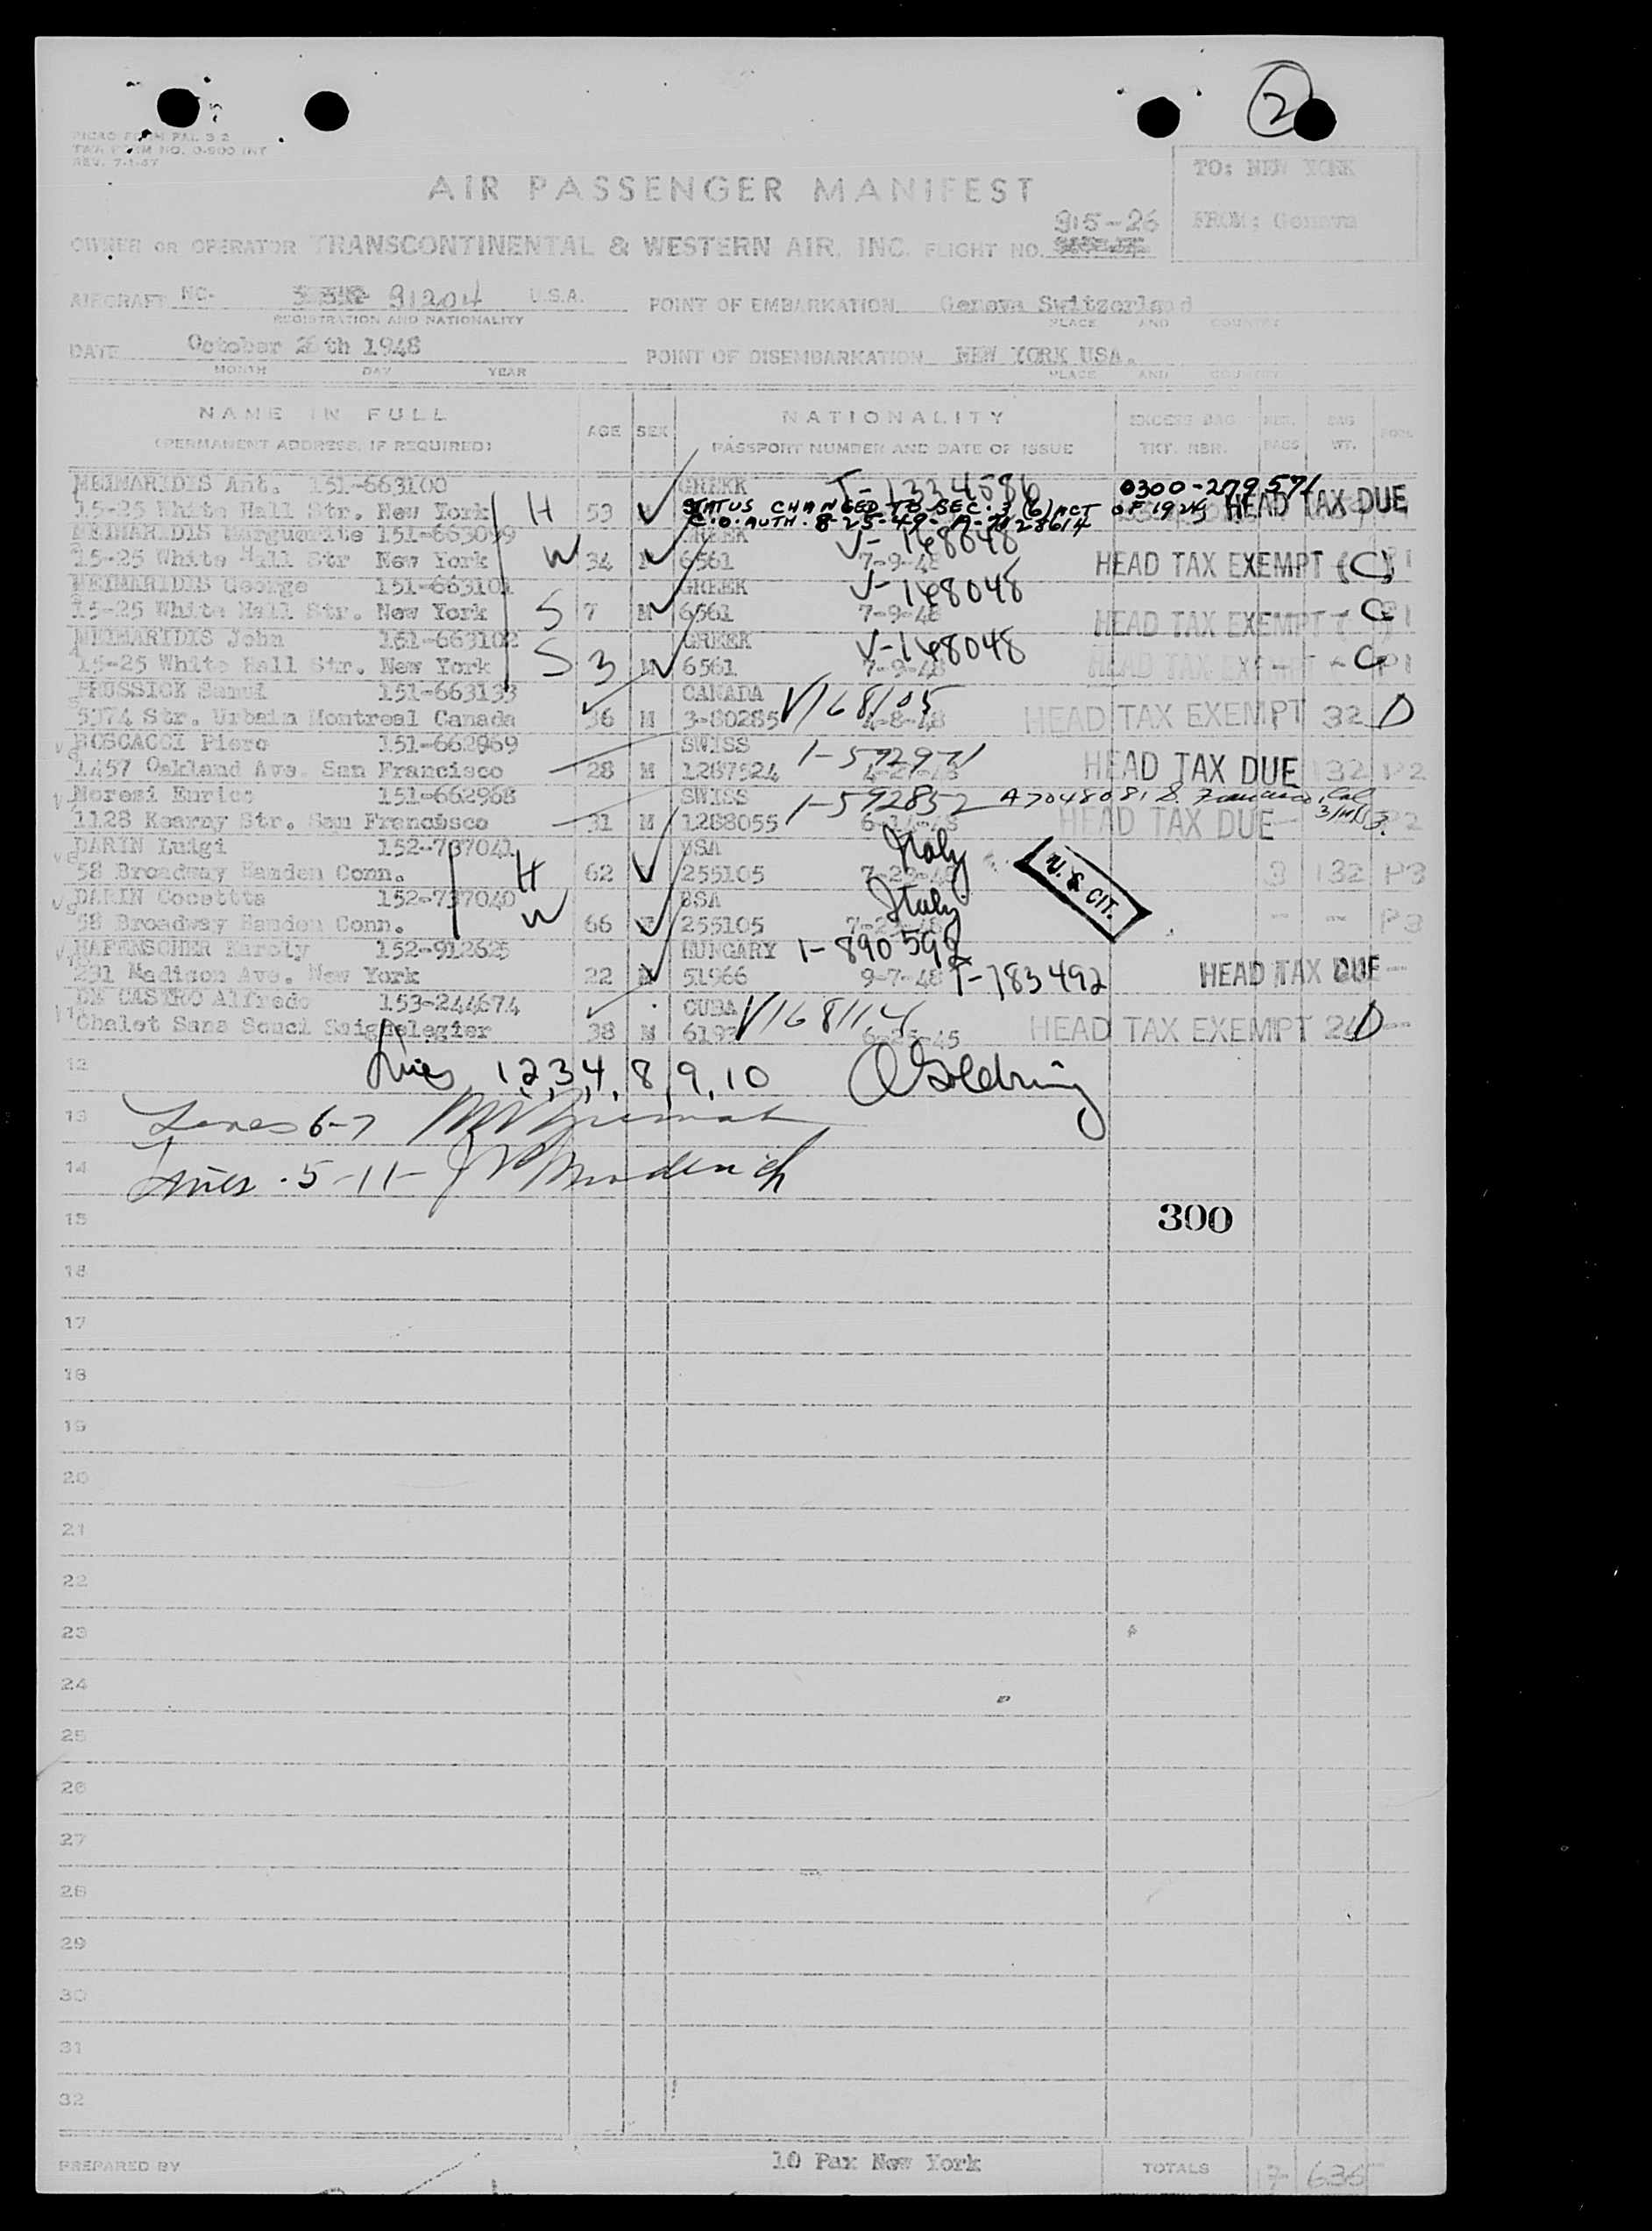 2
MICRO FORM PAL 3.2
TWA FORM NO. O-900 INT
REV. 7-1-47
TO: NEW YORK
AIR PASSENGER MANIFEST
915-26
FROM: Geneva
OWNER OR OPERATOR TRANSCONTINENTAL & WESTERN AIR, INC. FLIGHT NO.
AIRCRAFT NC- 91204 U.S.A. POINT OF EMBARKATION Geneva Switzerland
REGISTRATION AND NATIONALITY PLACE AND COUNTRY
DATE October 26th 1948 POINT OF DISEMBARKATION NEW YORK USA.
MONTH DAY YEAR PLACE AND COUNTRY
NAME IN FULL AGE SEX NATIONALITY EXCESS BAG BAG
(PERMANENT ADDRESS, IF REQUIRED) PASSPORT NUMBER AND DATE OF ISSUE TKT. NBR. WT.
MEIMARIDIS Ant. 151-663100 GREEK T-1334586 0300-279571
15-25 White Hall Str. New York H 53 STATUS CHANGED TO SEC. 3 (6) ACT OF 1924 HEAD TAX DUE
C.O. AUTH. 8-25-49-
MEIMARIDIS Marguerite 151-663099 GREEK V-168048
15-25 White Hall Str New York W 34 6561 7-9-48 HEAD TAX EXEMPT (C) P1
MEIMARIDIS George 151-663101 GREEK V-168048
15-25 White Hall Str. New York S 7 M 6561 7-9-48 HEAD TAX EXEMPT - C P1
MEIMARIDIS John 151-663102 GREEK V-168048
15-25 White Hall Str. New York S 3 M 6561 7-9-48 HEAD TAX EXEMPT - C P1
PRUSSICK Samul 151-663133 CANADA V168105
5374 Str. Urbain Montreal Canada 36 M 3-80285 4-8-48 HEAD TAX EXEMPT 32 D
BOSCACCI Piero 151-662969 SWISS 1-592971
1457 Oakland Ave. San Francisco 28 M 1287524 HEAD TAX DUE 32 P2
Moresi Enrico 151-662968 SWISS 1-592852 A7048081 S. Francisco, Cal
1128 Kearny Str. San Francisco 31 M 1288055 HEAD TAX DUE
DARIN Luigi 152-737041 USA Italy
58 Broadway Hamden Conn. H 62 255105 U. S. CIT. 3 132 P3
DARIN Cocettta 152-737040 USA Italy
58 Broadway Hamden Conn. W 66 255105 -- -- P3
HAFENSCHER Karoly 152-912625 HUNGARY 1-890598
231 Madison Ave. New York 22 M 51966 9-7-48 T-783492 HEAD TAX DUE --
DE CASTRO Alfredo 153-244674 CUBA V168114
Chalet Sans Souci Saignelegier 38 M 6-25-45 HEAD TAX EXEMPT D --
12 Lines 1,2,3,4, 8,9,10 Goldring
13 Lines 6-7
14 Lines 5-11-
15 300
16
17
18
19
20
21
22
23
24
25
26
27
28
29
30
31
32
PREPARED BY 10 Pax New York TOTALS 17 635